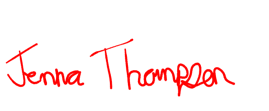 Jenna Thompson